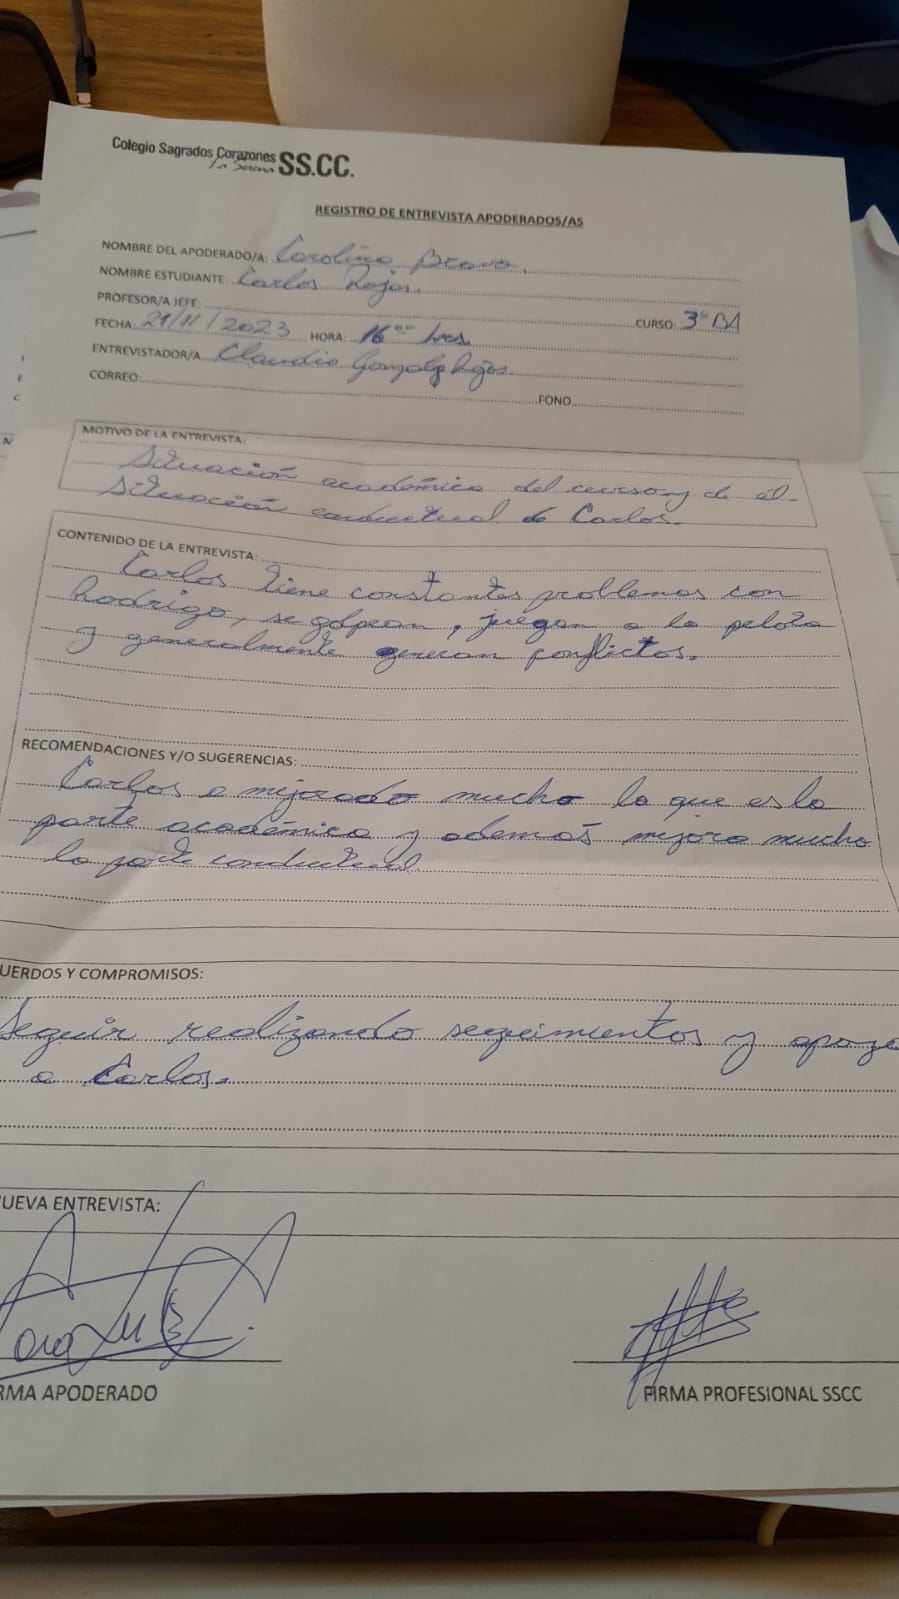 Colegio Sagrados Corazones SS.CC.
La Serena
REGISTRO DE ENTREVISTA APODERADOS/AS
NOMBRE DEL APODERADO/A: Carolina Bravo.
NOMBRE ESTUDIANTE: Carlos Rojas.
PROFESOR/A JEFE: CURSO: 3º BA
FECHA: 29/11/2023 HORA: 16ºº hrs.
ENTREVISTADOR/A Claudio Gonzalez Rojas.
CORREO: FONO
MOTIVO DE LA ENTREVISTA:
Situación académica del curso y de al-
situación conductual de Carlos.
CONTENIDO DE LA ENTREVISTA:
Carlos tiene constantes problemas con
Rodrigo, se golpean, juegan a la pelota
y generalmente generan conflictos.
RECOMENDACIONES Y/O SUGERENCIAS:
Carlos a mejorado mucho lo que es la
parte académica y además mejora mucho
la parte conductual.
UERDOS Y COMPROMISOS:
Seguir realizando seguimientos y apoyo
a Carlos.
UEVA ENTREVISTA:
RMA APODERADO FIRMA PROFESIONAL SSCC